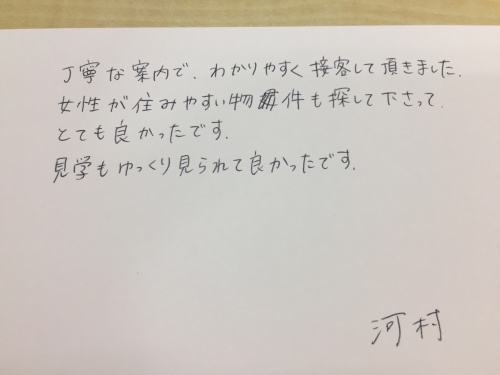 丁寧な案内で、わかりやすく接客して頂きました.
女性が住みやすい物件も探して下さって、
とても良かったです.
見学もゆっくり見られて良かったです.
河村